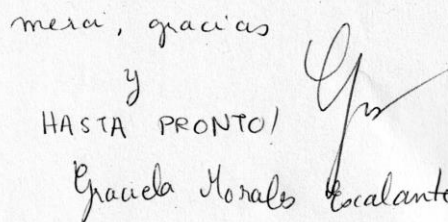 merci, gracias
y
HASTA PRONTO!
Graciela Morales Escalante